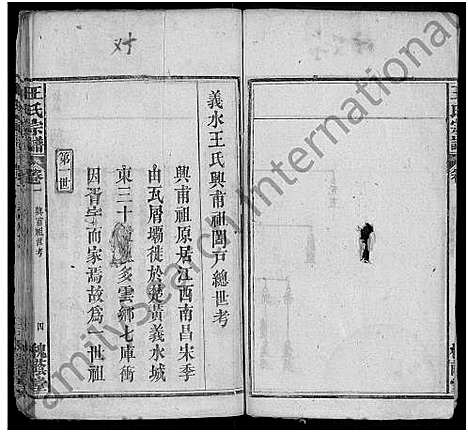 王氏宗譜
卷
義水王氏興甫祖闔戶總世考
興甫祖原居江西南昌宋季
由瓦屑壩徙於楚黃義水城
東三十里多雲鄉七庫衝
因胥宇而家焉故為一世祖
第一世
王氏宗譜
卷一
興甫祖世考
四
槐蔭堂
FamilySearch International